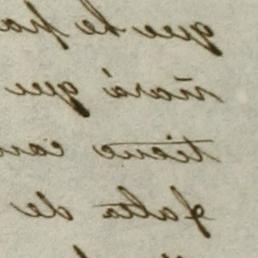 que le pa
ñará que
tiene con
falta de